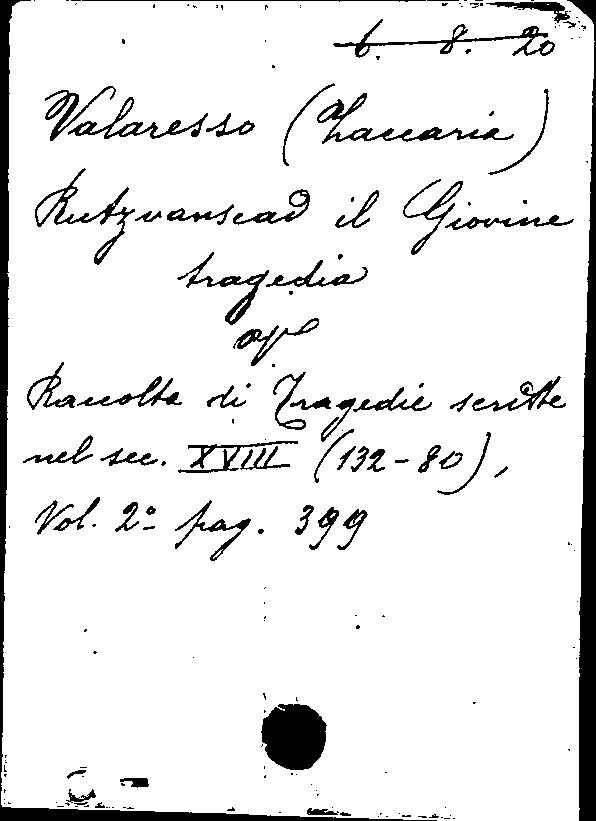 6. 8. 20
Valaresso (Zaccaria)
Rutzvanscad il Giovine
tragedia
op
Raccolta di Tragedie scritte
nel sec. XVIII (132-80),
Vol. 2º pag. 399